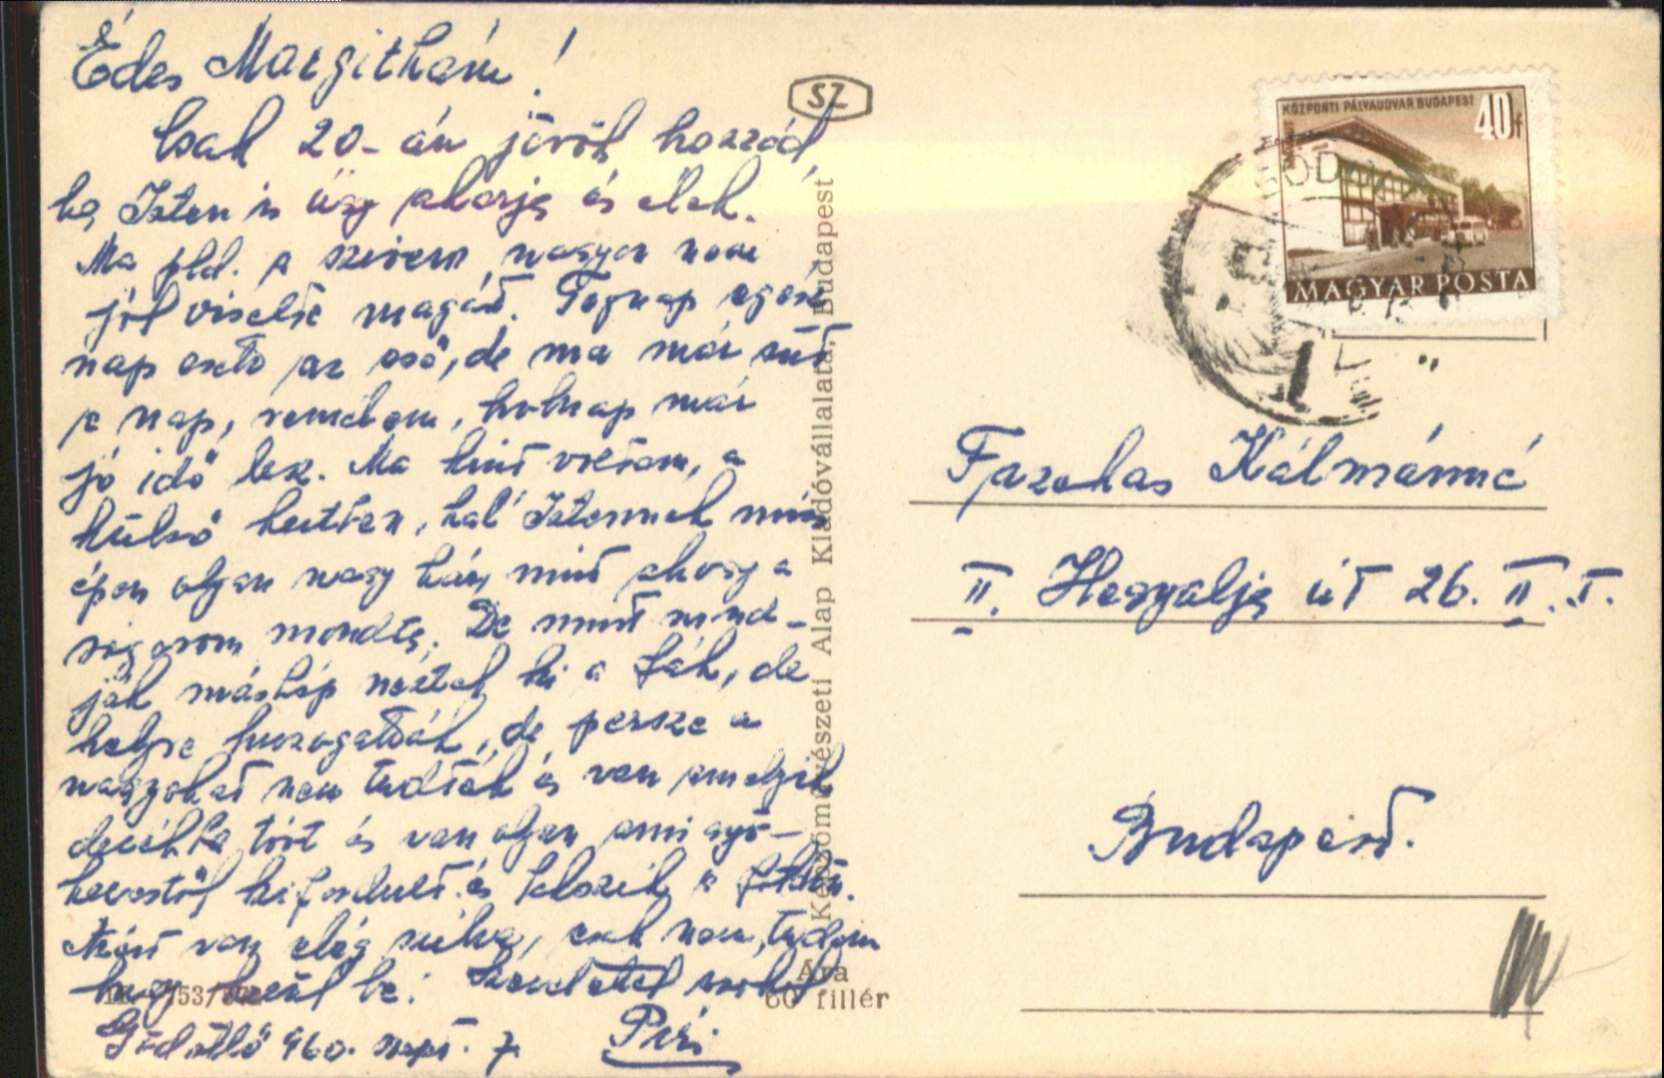 Édes Margitkám!
Csak 20-án jövök hozzád,
ha Isten is úgy akarja és élek.
Ma pld. a szivem nagyon nem
jól viselte magát. Tegnap egész
nap esett az eső, de ma már süt
a nap, remélem, holnap már
jó idő lesz. Ma kint voltam, a
külső kertben, hál' Istennek nincs
épen olyan nagy kár, mint ahogy a
sógorom mondta. De mint mond-
ják máskép néztek ki a fák, de
helyre huzogatták, de persze a
nagyokat nem tudták és van amelyik
derékba tört és van olyan ami gyö-
kerestől kifordult és fekszik a földön.
Azért van elég szilva, csak nem tudom
hogy kerül be. Szeretettel csókol
Gödöllő 960. szept. 7.
Piri
SZ
Képzőművészeti Alap Kiadóvállalata, Budapest
Ára
60 fillér
KÖZPONTI PÁLYAUDVAR BUDAPEST
40f
MAGYAR POSTA
Fazekas Kálmánné
II. Hegyalja út 26. II. I.
Budapest.